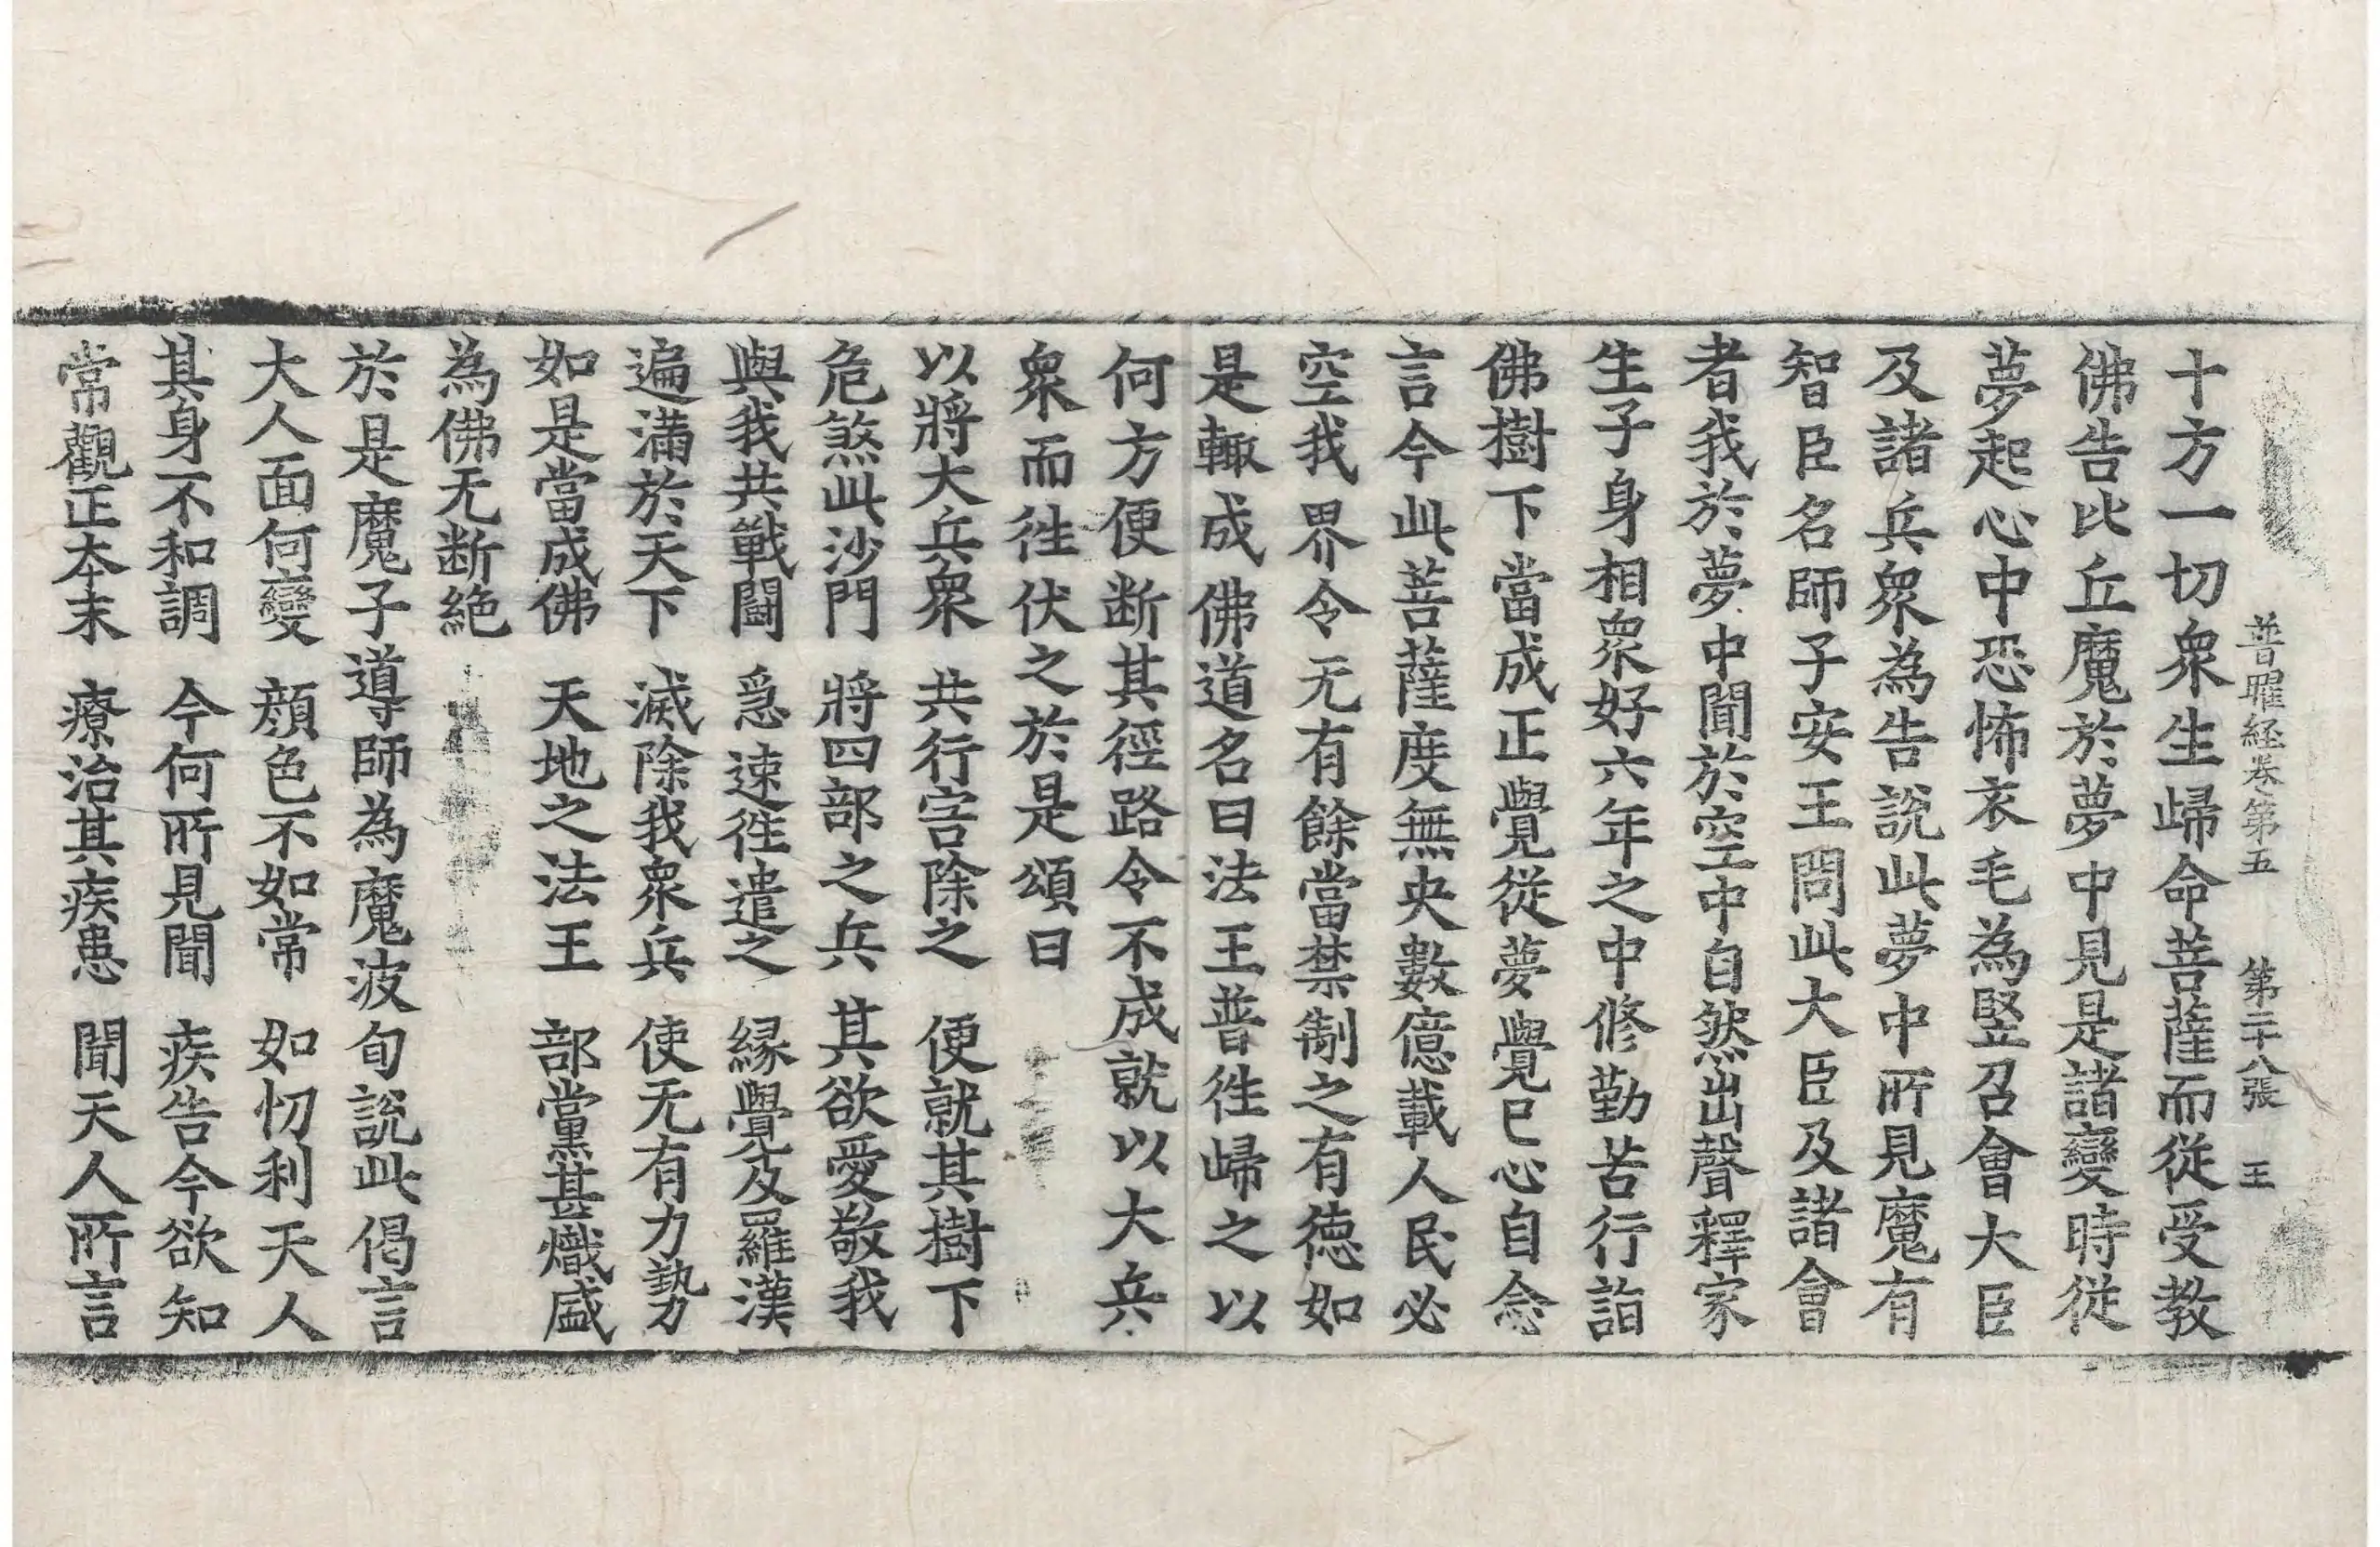 普曜経卷第五　第二十八張　王
十方一切衆生歸命菩薩而従受教
佛告比丘魔於夢中見是諸變時従
夢起心中恐怖衣毛為竪召會大臣
及諸兵衆為告說此夢中所見魔有
智臣名師子安王問此大臣及諸會
者我於夢中聞於空中自然出聲釋家
生子身相衆好六年之中修勤苦行詣
佛樹下當成正覺従夢覺已心自念
言今此菩薩度無央數億載人民必
空我界令无有餘當禁制之有德如
是輙成佛道名曰法王普徃歸之以
何方便断其徑路令不成就以大兵
衆而徃伏之於是頌曰
以將大兵衆　共行害除之　便就其樹下
危煞此沙門　將四部之兵　其欲愛敬我
與我共戰鬪　急速徃遣之　緣覺及羅漢
遍滿於天下　滅除我衆兵　使无有力勢
如是當成佛　天地之法王　部黨甚熾盛
為佛无断絶
於是魔子導師為魔波旬說此偈言
大人面何變　顔色不如常　如忉利天人
其身不和調　今何所見聞　疾告今欲知
常觀正本末　療治其疾患　聞天人所言